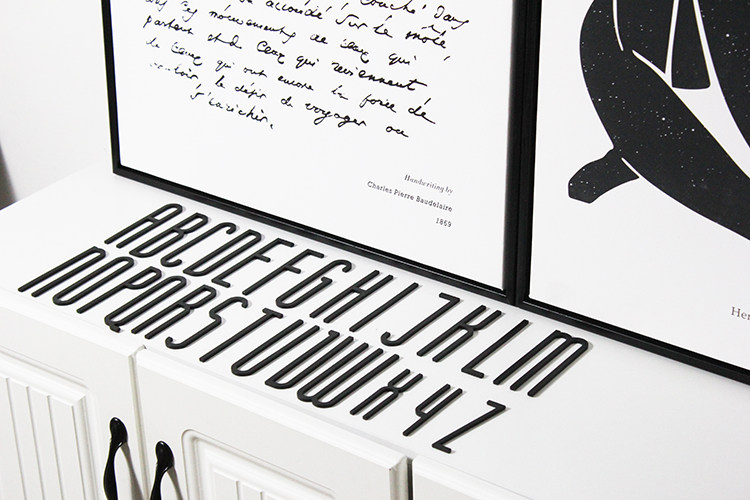 couché dans
accoudé sur le môle
ces mouvements de ceux qui
partent et de ceux qui reviennent
de ceux qui ont encore la force de
vouloir le désir de voyager ou
s'enrichir.
Handwriting by
Charles Pierre Baudelaire
1869
Her
ABCDEFGHIJKLM
NOPQRSTUVWXYZ